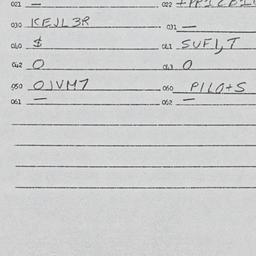 021 — 022
030 KEJL3R 031 —
040 $ 041 SUFI,T
042 O 043 O
050 OJVM7 060 PILO+S
061 — 062 —